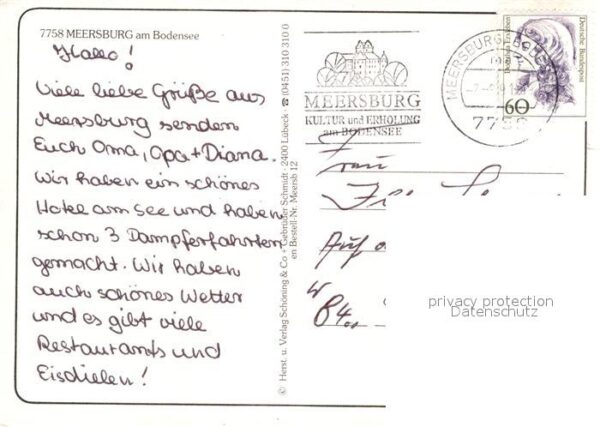 7758 MEERSBURG am Bodensee
Hallo!
Viele liebe Grüße aus
Meersburg senden
Euch Oma, Opa + Diana.
Wir haben ein schönes
Hotel am See und haben
schon 3 Dampferfahrten
gemacht. Wir haben
auch schönes Wetter
und es gibt viele
Restaurants und
Eisdielen!
© Herst. u. Verlag Schöning & Co + Gebrüder Schmidt · 2400 Lübeck · ☎ (0451) 310 310 0
en Bestell-Nr. Meersb 12
MEERSBURG
KULTUR und ERHOLUNG
am BODENSEE
MEERSBURG, BODENSEE
7758
Deutsche Bundespost
60
Frau
Auf
W
84
privacy protection
Datenschutz